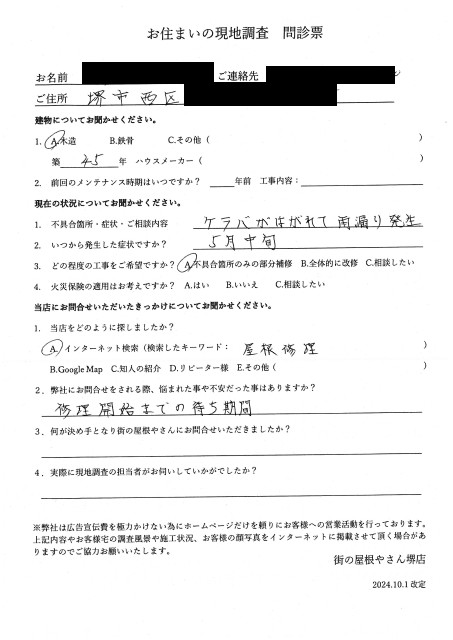 お住まいの現地調査 問診票
お名前 ご連絡先
ご住所 堺市西区
建物についてお聞かせください。
1. A.木造 B.鉄骨 C.その他（ ）
築 45 年 ハウスメーカー（ ）
2. 前回のメンテナンス時期はいつですか？ 年前 工事内容：
現在の状況についてお聞かせください。
1. 不具合箇所・症状・ご相談内容 ケラバがはがれて雨漏り発生
2. いつから発生した症状ですか？ 5月中旬
3. どの程度の工事をご希望ですか？ A.不具合箇所のみの部分補修 B.全体的に改修 C.相談したい
4. 火災保険の適用はお考えですか？ A.はい B.いいえ C.相談したい
当店にお問合せいただいたきっかけについてお聞かせください。
1. 当店をどのように探しましたか？
A.インターネット検索（検索したキーワード： 屋根修理 ）
B.Google Map C.知人の紹介 D.リピーター様 E.その他（ ）
2．弊社にお問合せをされる際、悩まれた事や不安だった事はありますか？
修理開始までの待ち期間
3．何が決め手となり街の屋根やさんにお問合せいただきましたか？
4．実際に現地調査の担当者がお伺いしていかがでしたか？
※弊社は広告宣伝費を極力かけない為にホームページだけを頼りにお客様への営業活動を行っております。
上記内容やお客様宅の調査風景や施工状況、お客様の顔写真をインターネットに掲載させて頂く場合があ
りますのでご協力お願いいたします。
街の屋根やさん堺店
2024.10.1 改定